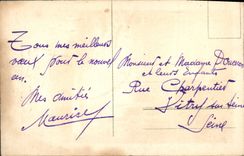 Tous mes meilleurs
vœux pour le nouvel
an.
Mes amitiés
Maurice
Monsieur et Madame
et leurs enfants
Rue Charpentier
Vitry sur Seine
Seine